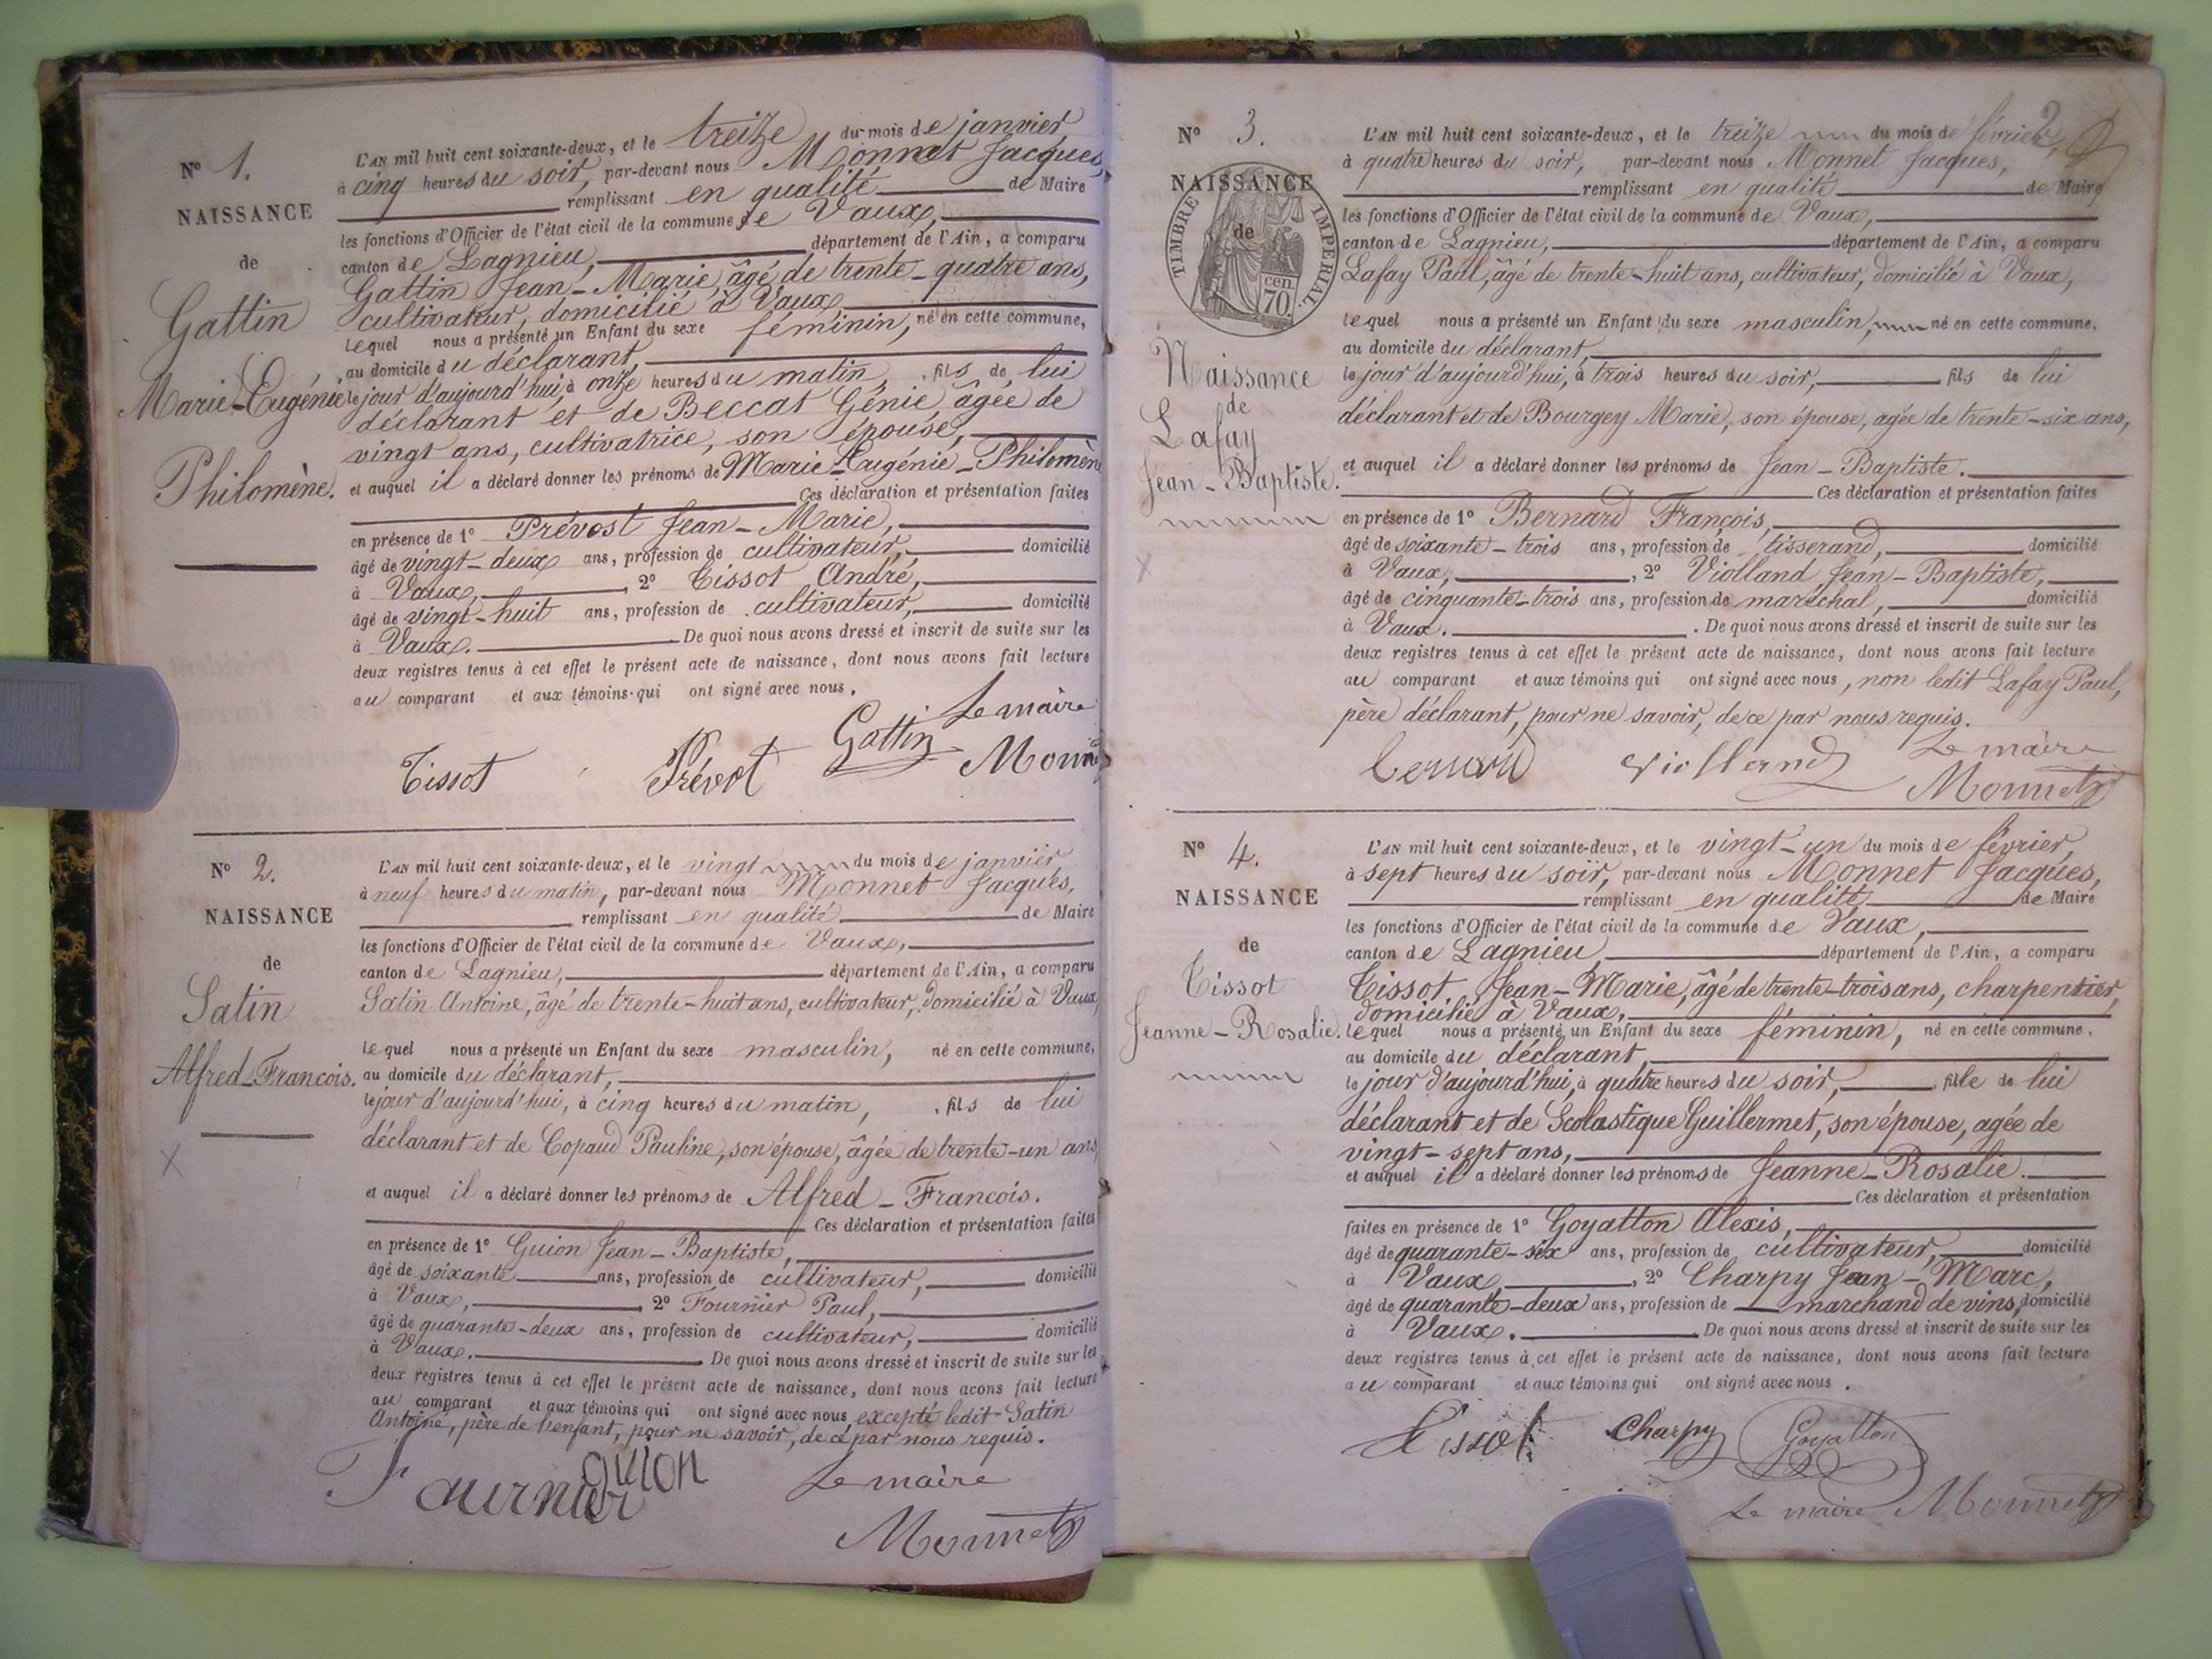 N° 1.
NAISSANCE
de
Gattin
Marie-Eugénie
Philomène.
L'AN mil huit cent soixante-deux, et le treize du mois de janvier,
à cinq heures du soir, par-devant nous Monnet Jacques,
remplissant en qualité de Maire
les fonctions d'Officier de l'état civil de la commune de Vaux,
canton de Lagnieu, département de l'Ain, a comparu
Gattin Jean-Marie, âgé de trente-quatre ans,
cultivateur, domicilié à Vaux,
lequel nous a présenté un Enfant du sexe féminin, né en cette commune,
au domicile du déclarant,
le jour d'aujourd'hui, à onze heures du matin, fils de lui
déclarant et de Beccat Génie, âgée de
vingt ans, cultivatrice, son épouse,
et auquel il a déclaré donner les prénoms de Marie-Eugénie-Philomène
Ces déclaration et présentation faites
en présence de 1° Prévost Jean-Marie,
âgé de vingt-deux ans, profession de cultivateur, domicilié
à Vaux, 2° Tissot André,
âgé de vingt-huit ans, profession de cultivateur, domicilié
à Vaux. De quoi nous avons dressé et inscrit de suite sur les
deux registres tenus à cet effet le présent acte de naissance, dont nous avons fait lecture
au comparant et aux témoins qui ont signé avec nous.
Le maire
Tissot Prévot Gattin Monnet
N° 2.
NAISSANCE
de
Satin
Alfred-Francois.
L'AN mil huit cent soixante-deux, et le vingt du mois de janvier
à neuf heures du matin, par-devant nous Monnet Jacques,
remplissant en qualité de Maire
les fonctions d'Officier de l'état civil de la commune de Vaux,
canton de Lagnieu, département de l'Ain, a comparu
Satin Antoine, âgé de trente-huit ans, cultivateur, domicilié à Vaux,
lequel nous a présenté un Enfant du sexe masculin, né en cette commune,
au domicile du déclarant,
le jour d'aujourd'hui, à cinq heures du matin, fils de lui
déclarant et de Copaud Pauline, son épouse, âgée de trente-un ans,
et auquel il a déclaré donner les prénoms de Alfred-Francois.
Ces déclaration et présentation faites
en présence de 1° Guion Jean-Baptiste,
âgé de soixante ans, profession de cultivateur, domicilié
à Vaux, 2° Fournier Paul,
âgé de quarante-deux ans, profession de cultivateur, domicilié
à Vaux. De quoi nous avons dressé et inscrit de suite sur les
deux registres tenus à cet effet le présent acte de naissance, dont nous avons fait lecture
au comparant et aux témoins qui ont signé avec nous, excepté ledit Satin
Antoine, père de l'enfant, pour ne savoir, de ce par nous requis.
Fournier Guion Le maire
Monnet
2
N° 3.
NAISSANCE
de
TIMBRE IMPERIAL
cen. 70.
Naissance
de
Lafay
Jean-Baptiste.
L'AN mil huit cent soixante-deux, et le treize du mois de février,
à quatre heures du soir, par-devant nous Monnet Jacques,
remplissant en qualité de Maire
les fonctions d'Officier de l'état civil de la commune de Vaux,
canton de Lagnieu, département de l'Ain, a comparu
Lafay Paul, âgé de trente-huit ans, cultivateur, domicilié à Vaux,
lequel nous a présenté un Enfant du sexe masculin, né en cette commune,
au domicile du déclarant,
le jour d'aujourd'hui, à trois heures du soir, fils de lui
déclarant et de Bourgey Marie, son épouse, agée de trente-six ans,
et auquel il a déclaré donner les prénoms de Jean-Baptiste.
Ces déclaration et présentation faites
en présence de 1° Bernard François,
âgé de soixante-trois ans, profession de tisserand, domicilié
à Vaux, 2° Violland Jean-Baptiste,
âgé de cinquante-trois ans, profession de maréchal, domicilié
à Vaux. De quoi nous avons dressé et inscrit de suite sur les
deux registres tenus à cet effet le présent acte de naissance, dont nous avons fait lecture
au comparant et aux témoins qui ont signé avec nous, non ledit Lafay Paul,
père déclarant, pour ne savoir, de ce par nous requis.
Bernard Violland Le maire
Monnet
N° 4.
NAISSANCE
de
Tissot
Jeanne-Rosalie.
L'AN mil huit cent soixante-deux, et le vingt-un du mois de février,
à sept heures du soir, par-devant nous Monnet Jacques,
remplissant en qualité de Maire
les fonctions d'Officier de l'état civil de la commune de Vaux,
canton de Lagnieu, département de l'Ain, a comparu
Tissot Jean-Marie, âgé de trente-trois ans, charpentier,
domicilié à Vaux,
lequel nous a présenté un Enfant du sexe féminin, né en cette commune,
au domicile du déclarant,
le jour d'aujourd'hui, à quatre heures du soir, fille de lui
déclarant et de Scolastique Guillermet, son épouse, agée de
vingt-sept ans,
et auquel il a déclaré donner les prénoms de Jeanne-Rosalie.
Ces déclaration et présentation
faites en présence de 1° Goyatton Alexis,
âgé de quarante-six ans, profession de cultivateur, domicilié
à Vaux, 2° Charpy Jean-Marc,
âgé de quarante-deux ans, profession de marchand de vins, domicilié
à Vaux. De quoi nous avons dressé et inscrit de suite sur les
deux registres tenus à cet effet le présent acte de naissance, dont nous avons fait lecture
au comparant et aux témoins qui ont signé avec nous.
Tissot Charpy Goyatton
Le maire Monnet